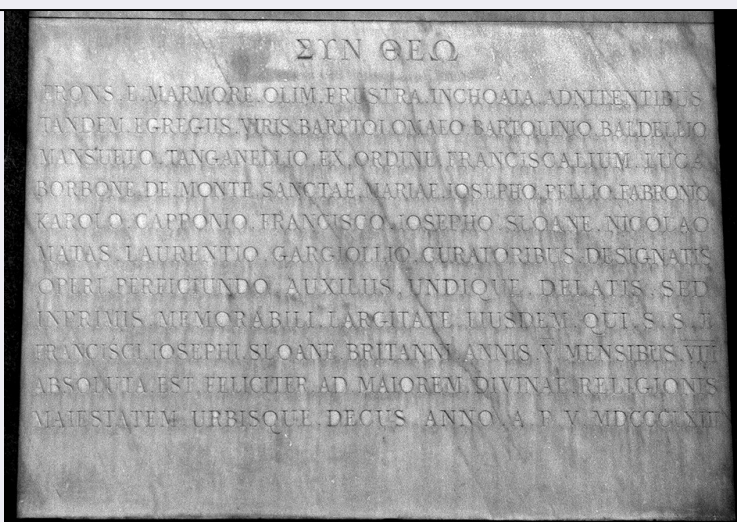 ΣΥΝ ΘΕΩ
FRONS . E . MARMORE . OLIM . FRUSTRA . INCHOATA . ADNITENTIBUS
TANDEM . EGREGIIS . VIRIS . BARPTOLOMAEO BARTOLINIO BALDELLIO
MANSUETO . TANGANELLIO EX . ORDINE FRANCISCALIUM LUCA
BORBONE DE . MONTE SANCTAE . MARIAE . IOSEPHO . PELLIO . FABRONIO
KAROLO . CAPPONIO . FRANCISCO . IOSEPHO SLOANE . NICOLAO
MATAS . LAURENTIO GARGIOLLIO . CURATORIBUS DESIGNATIS
OPERI PERFICIUNDO . AUXILIIS . UNDIQUE . DELATIS . SED
INPRIMIS . MEMORABILI . LARGITATE EIUSDEM . QUI . S . S .
FRANCISCI . IOSEPHI . SLOANE BRITANNI ANNIS . V MENSIBUS . VIII
ABSOLUTA EST . FELICITER AD MAIOREM . DIVINAE RELIGIONIS
MAIESTATEM URBISQUE . DECUS ANNO . A P V